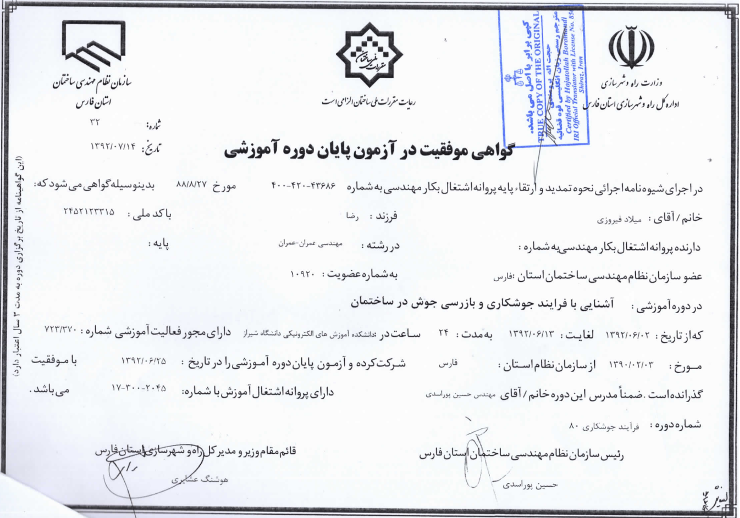 وزارت راه و شهرسازی
اداره کل راه و شهرسازی استان فارس
کپی برابر با اصل می باشد.
TRUE COPY OF THE ORIGINAL
Certified by Hojatollah
IRI Official Translator with License No.
Shiraz, Iran
رعایت مقررات ملی ساختمان الزامی است
سازمان نظام مهندسی ساختمان
استان فارس
شماره: ۳۲
تاریخ: ۱۳۹۲/۰۷/۱۴
گواهی موفقیت در آزمون پایان دوره آموزشی
در اجرای شیوه نامه اجرائی نحوه تمدید و ارتقاء پایه پروانه اشتغال بکار مهندسی به شماره ۴۳۶۸۶-۴۲۰-۴۰۰ مورخ ۸۸/۸/۲۷ بدینوسیله گواهی می شود که:
خانم / آقای : میلاد فیروزی فرزند : رضا با کد ملی : ۲۴۵۲۱۲۳۳۱۵
دارنده پروانه اشتغال بکار مهندسی به شماره : در رشته : مهندسی عمران-عمران پایه :
عضو سازمان نظام مهندسی ساختمان استان : فارس به شماره عضویت : ۱۰۹۲۰
در دوره آموزشی : آشنایی با فرایند جوشکاری و بازرسی جوش در ساختمان
که از تاریخ : ۱۳۹۲/۰۶/۰۲ لغایت : ۱۳۹۲/۰۶/۱۳ به مدت : ۲۴ ساعت در : دانشکده آموزش های الکترونیکی دانشگاه شیراز دارای مجوز فعالیت آموزشی شماره : ۷۲۳/۳۷۰
مورخ : ۱۳۹۰/۰۲/۰۳ از سازمان نظام استان : فارس شرکت کرده و آزمون پایان دوره آموزشی را در تاریخ : ۱۳۹۲/۰۶/۲۵ با موفقیت
گذرانده است . ضمناً مدرس این دوره خانم / آقای مهندس حسین پوراسدی دارای پروانه اشتغال آموزش با شماره: ۲۰۴۵-۳۰۰-۱۷ می باشد.
شماره دوره : فرآیند جوشکاری ۸۰
رئیس سازمان نظام مهندسی ساختمان استان فارس
حسین پوراسدی
قائم مقام وزیر و مدیر کل راه و شهرسازی استان فارس
هوشنگ عشایری
(این گواهینامه از تاریخ برگزاری دوره به مدت ۳ سال اعتبار دارد)